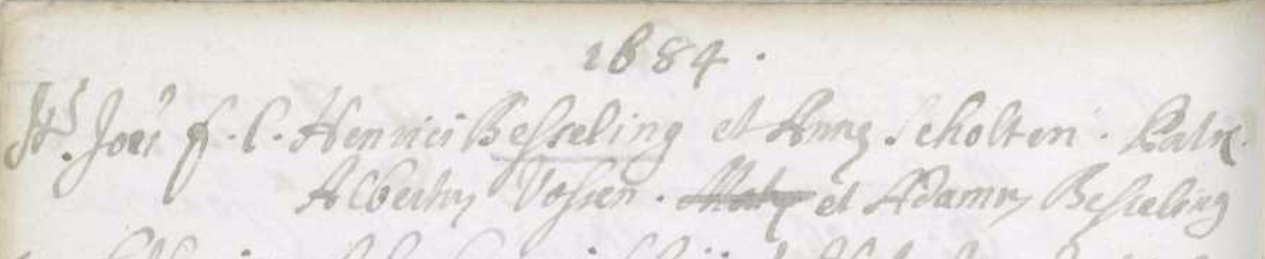 1684.
Joës f. l. Henrici Besseling et Annæ Scholten. Patr.
Albertus Vossen. et Adamus Besseling